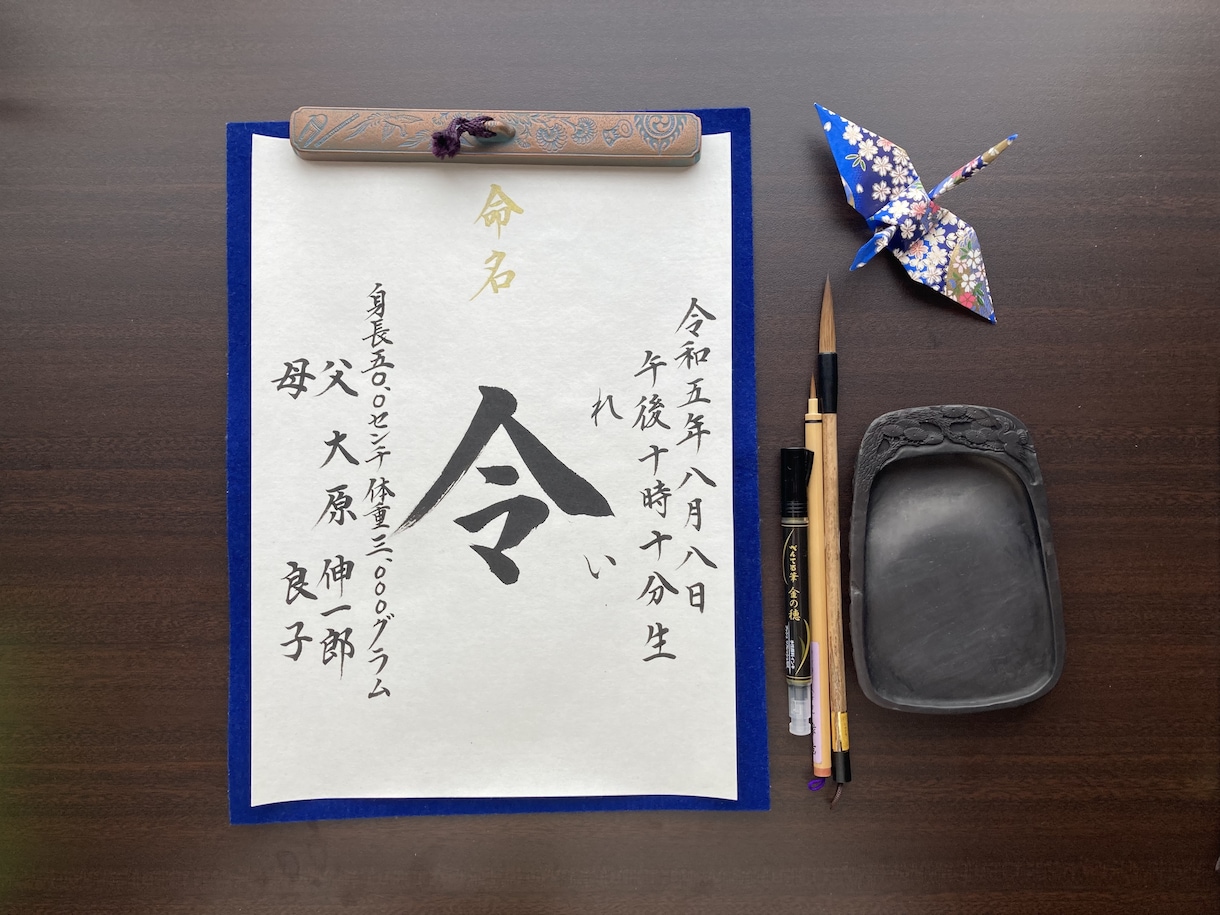 命名
令和五年八月八日
午後十時十分生
れい
令
身長五〇.〇センチ体重三.〇〇〇グラム
父 大原 伸一郎
母 良子
ぺんてる筆 金の穂